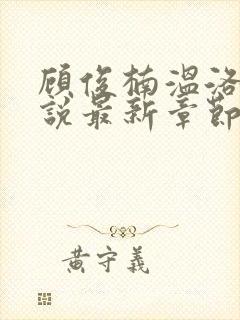 顾俊楠温洛
说最新章节
黄守义